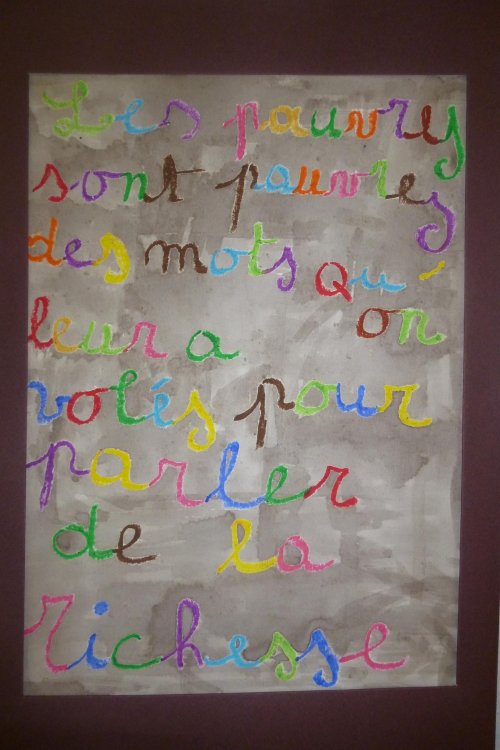 Les pauvres
sont pauvres
des mots Qu'
on
leur a
volés pour
parler
de la
richesse